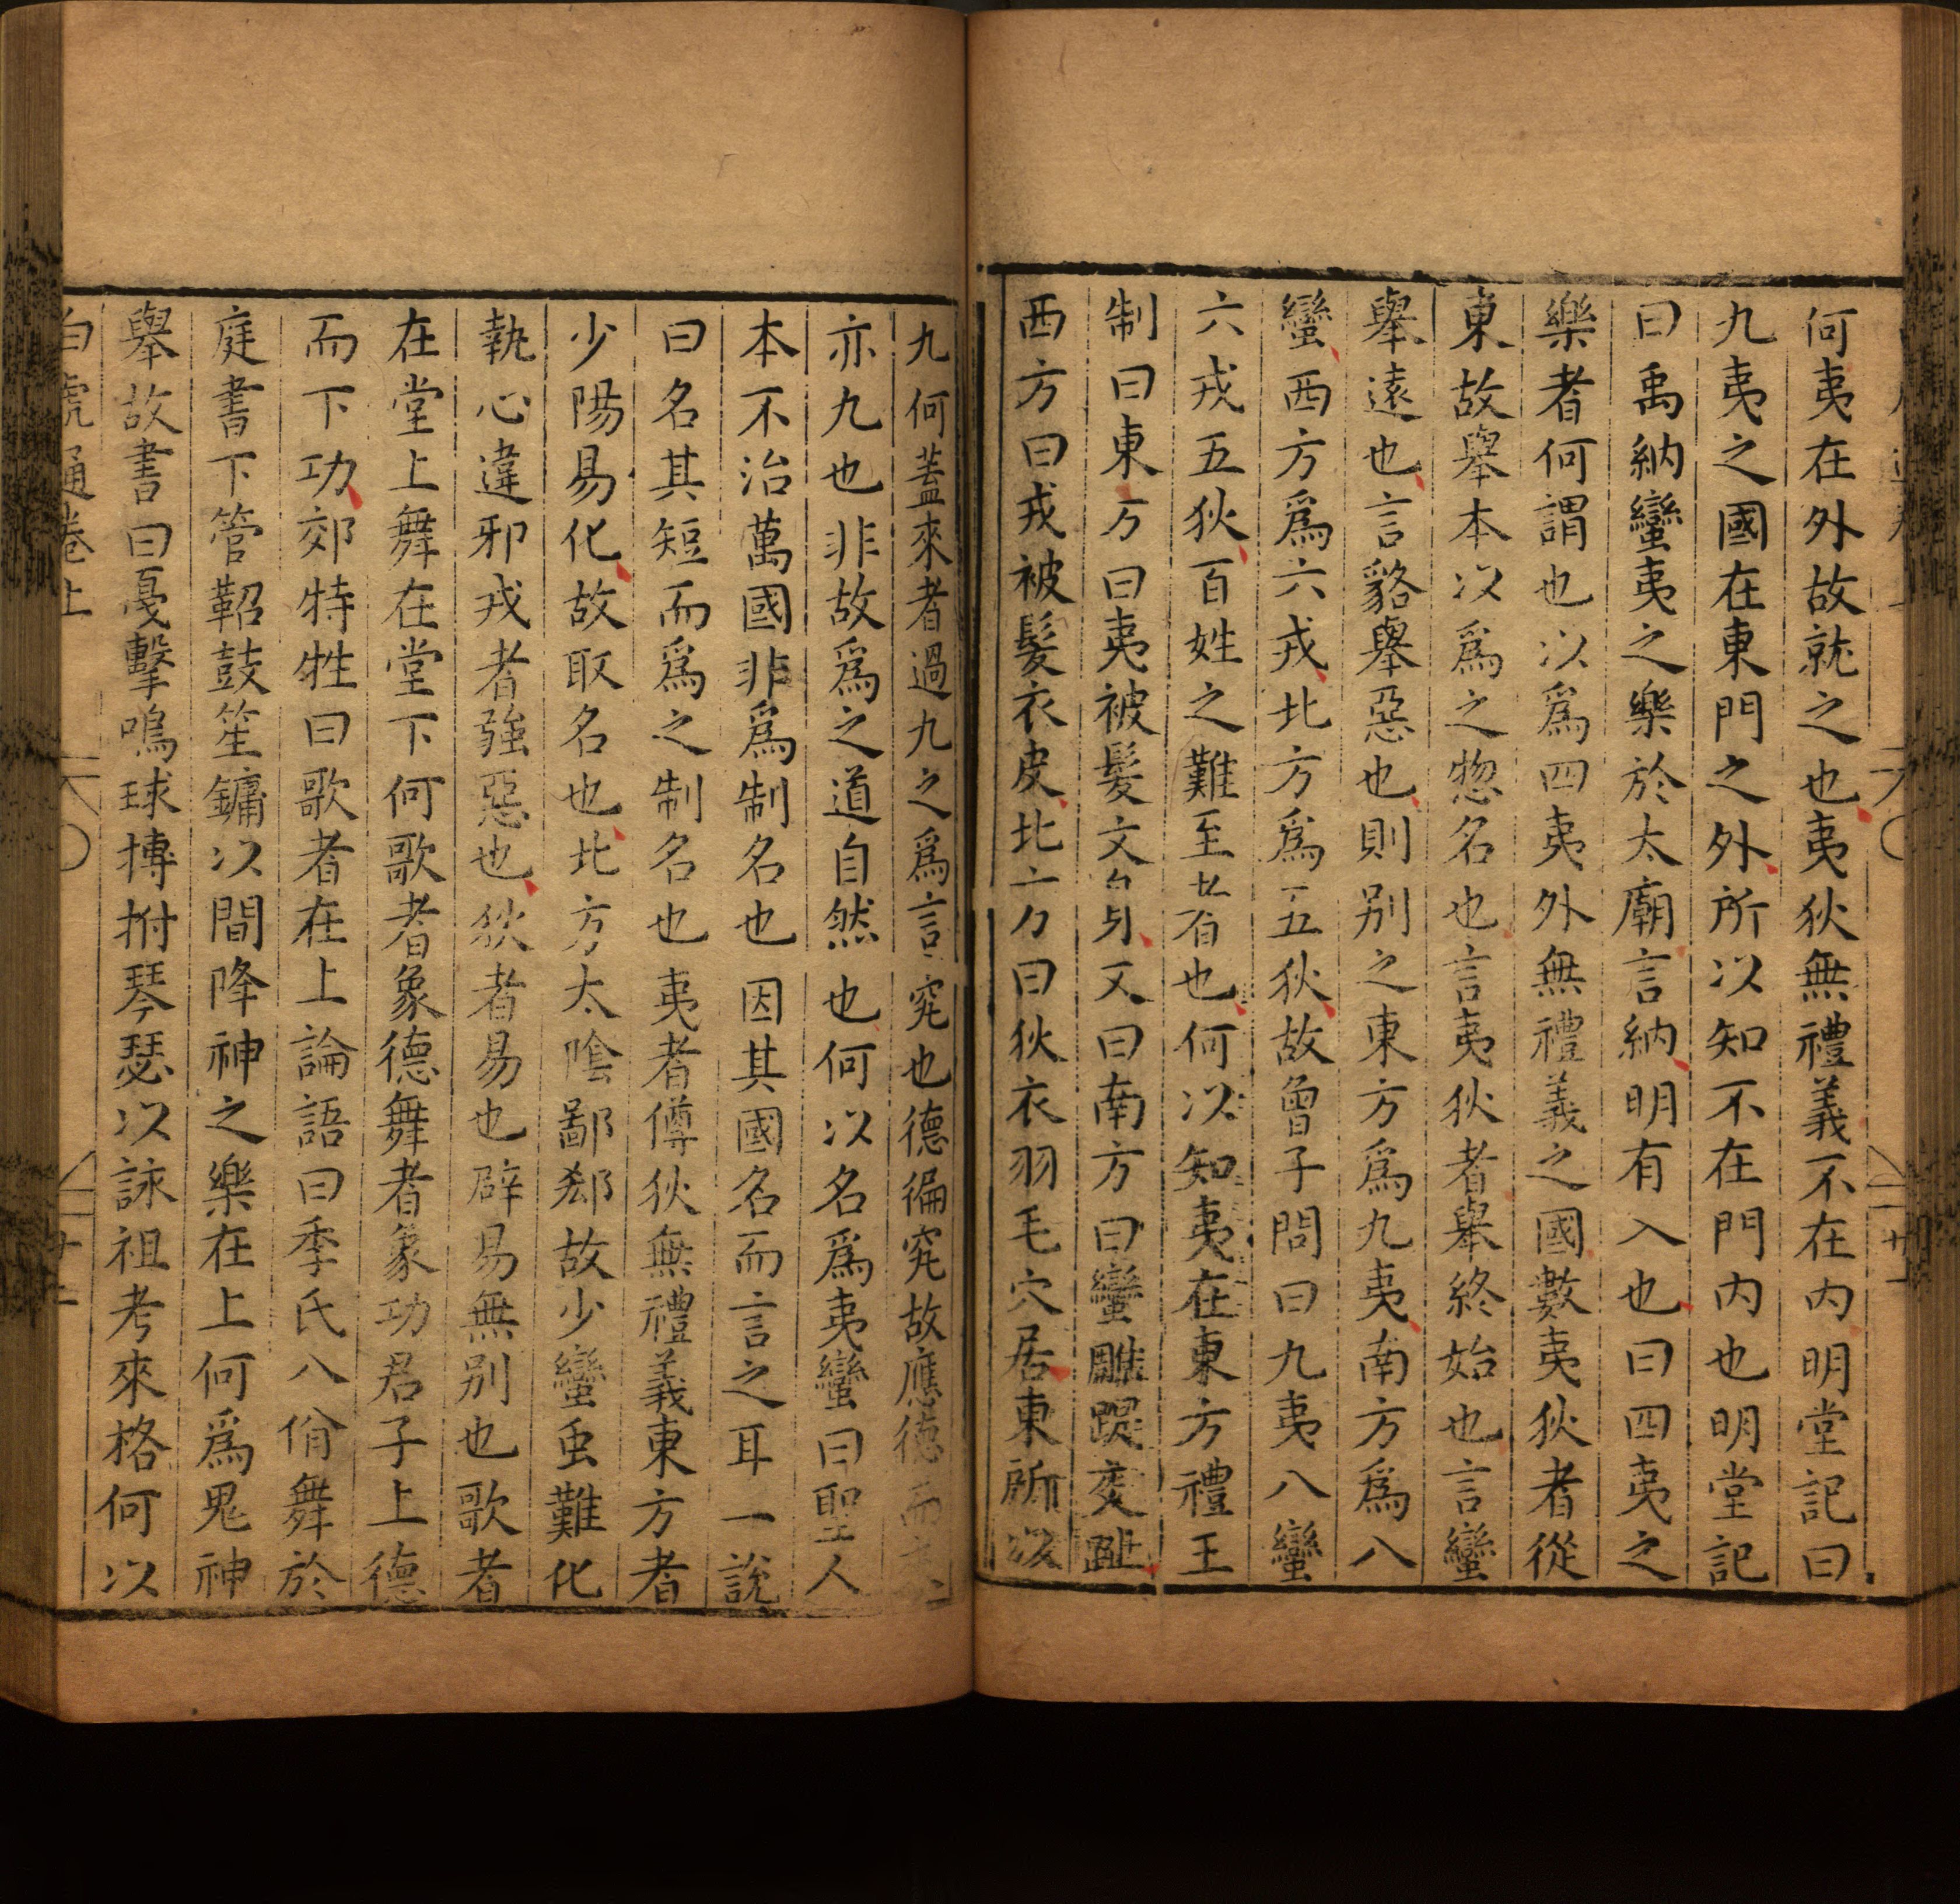 何夷在外故就之也夷狄無禮義不在内明堂記曰
九夷之國在東門之外所以知不在門内也明堂記
曰禹納蠻夷之樂於太廟言納明有入也曰四夷之
樂者何謂也以爲四夷外無禮義之國數夷狄者從
東故舉本以爲之惣名也言夷狄者舉終始也言蠻
舉遠也言貉舉惡也則别之東方爲九夷南方爲八
蠻西方爲六戎北方爲五狄故曾子問曰九夷八蠻
六戎五狄百姓之難至者也何以知夷在東方禮王
制曰東方曰夷被髮文身又曰南方曰蠻雕踶交趾
西方曰戎被髮衣皮北方曰狄衣羽毛穴居東所以
九何蓋來者過九之爲言究也德徧究故應德而
亦九也非故爲之道自然也何以名爲夷蠻曰聖人
本不治萬國非爲制名也因其國名而言之耳一說
曰名其短而爲之制名也夷者僔狄無禮義東方者
少陽易化故取名也北方太陰鄙郄故少蠻虫難化
執心違邪戎者强惡也狄者易也辟易無别也歌者
在堂上舞在堂下何歌者象德舞者象功君子上德
而下功郊特牲曰歌者在上論語曰季氏八佾舞於
庭書下管鞀鼓笙鏞以間降神之樂在上何爲鬼神
舉故書曰戞擊鳴球搏拊琴瑟以詠祖考來格何以
白虎通卷上